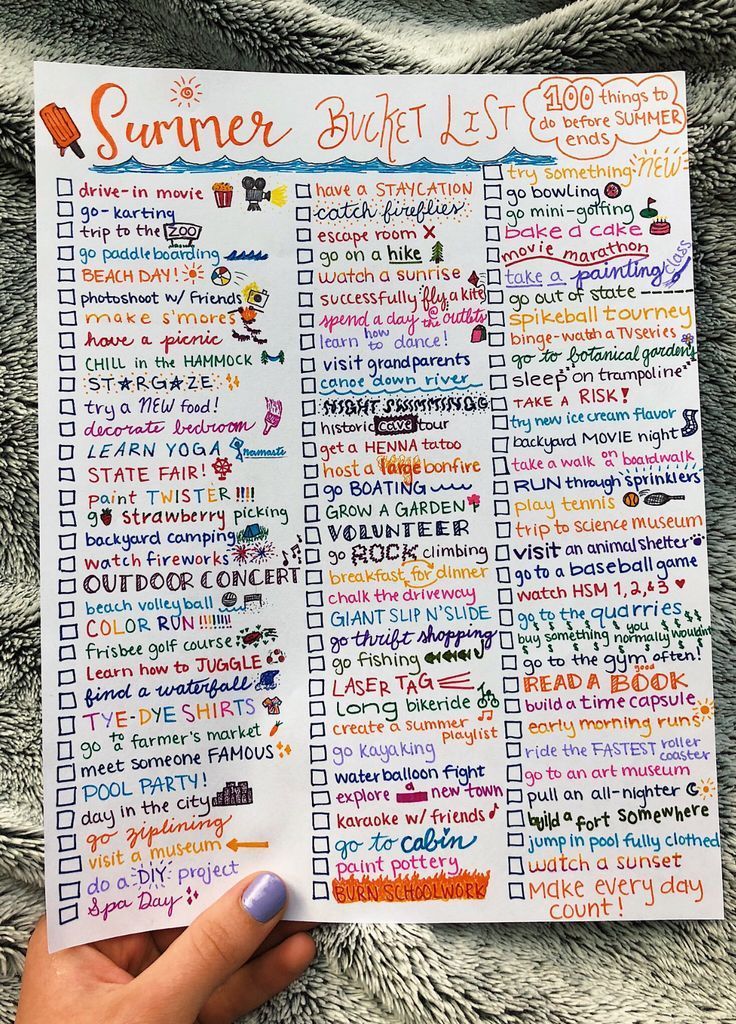 Summer BUCKET LIST
100 things to
do before SUMMER
ends
drive-in movie
go-karting
trip to the ZOO
go paddleboarding
BEACH DAY!
photoshoot w/ friends
make s'mores
have a picnic
CHILL in the HAMMOCK
STARGAZE
try a NEW food!
decorate bedroom
LEARN YOGA namaste
STATE FAIR!
paint TWISTER !!!!
go strawberry picking
backyard camping
watch fireworks
OUTDOOR CONCERT
beach volleyball
COLOR RUN!!!!!!!
frisbee golf course
learn how to JUGGLE
find a waterfall
TYE-DYE SHIRTS
go to a farmer's market
meet someone FAMOUS
POOL PARTY!
day in the city
go ziplining
visit a museum
do a DIY project
Spa Day
have a STAYCATION
catch fireflies
escape room
go on a hike
watch a sunrise
successfully fly a kite
spend a day @ the outlets
learn how to dance!
visit grandparents
canoe down river
NIGHT SWIMMING
historic cave tour
get a HENNA tatoo
host a large bonfire
go BOATING
GROW A GARDEN
VOLUNTEER
go ROCK climbing
breakfast for dinner
chalk the driveway
GIANT SLIP N' SLIDE
go thrift shopping
go fishing
LASER TAG
long bikeride
create a summer
playlist
go kayaking
water balloon fight
explore a new town
karaoke w/ friends
go to cabin
paint pottery
BURN SCHOOLWORK
try something NEW
go bowling
go mini-golfing
bake a cake
movie marathon
take a painting class
go out of state
spikeball tourney
binge-watch a TV series
go to botanical gardens
sleep on trampoline
TAKE A RISK!
try new ice cream flavor
backyard MOVIE night
take a walk on a boardwalk
RUN through sprinklers
play tennis
trip to science museum
visit an animal shelter
go to a baseball game
watch HSM 1, 2, & 3
go to the quarries
$ $ $ $ $ you $ $
buy something normally wouldn't
go to the gym often!
READ A good BOOK
build a time capsule
early morning runs
ride the FASTEST roller
coaster
go to an art museum
pull an all-nighter
build a fort somewhere
jump in pool fully clothed
watch a sunset
Make every day
count!